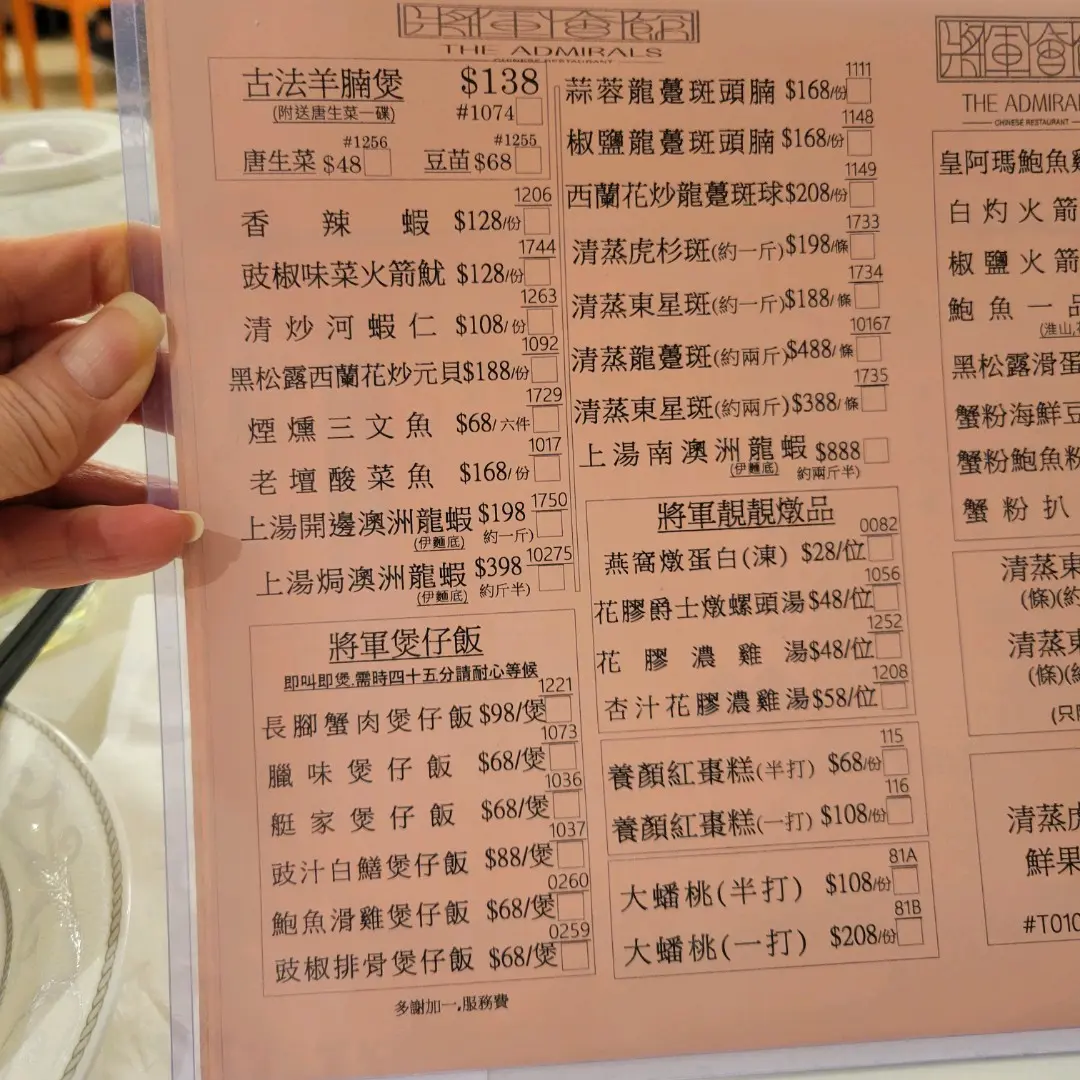 將軍會館
THE ADMIRALS
CHINESE RESTAURANT
古法羊腩煲 $138
(附送唐生菜一碟) #1074
#1256 #1255
唐生菜 $48 豆苗 $68
1206
香辣蝦 $128/份
1744
豉椒味菜火箭魷 $128/份
1263
清炒河蝦仁 $108/份
1092
黑松露西蘭花炒元貝 $188/份
1729
煙燻三文魚 $68/六件
1017
老壇酸菜魚 $168/份
1750
上湯開邊澳洲龍蝦 $198
(伊麵底) 約一斤)
10275
上湯焗澳洲龍蝦 $398
(伊麵底) 約斤半)
將軍煲仔飯
即叫即煲.需時四十五分請耐心等候
1221
長腳蟹肉煲仔飯 $98/煲
1073
臘味煲仔飯 $68/煲
1036
艇家煲仔飯 $68/煲
1037
豉汁白鱔煲仔飯 $88/煲
0260
鮑魚滑雞煲仔飯 $68/煲
0259
豉椒排骨煲仔飯 $68/煲
多謝加一.服務費
1111
蒜蓉龍躉斑頭腩 $168/份
1148
椒鹽龍躉斑頭腩 $168/份
1149
西蘭花炒龍躉斑球 $208/份
1733
清蒸虎杉斑(約一斤) $198/條
1734
清蒸東星斑(約一斤) $188/條
10167
清蒸龍躉斑(約兩斤) $488/條
1735
清蒸東星斑(約兩斤) $388/條
上湯南澳洲龍蝦 $888
(伊麵底) 約兩斤半)
將軍靚靚燉品
0082
燕窩燉蛋白(凍) $28/位
1056
花膠爵士燉螺頭湯 $48/位
1252
花膠濃雞湯 $48/位
1208
杏汁花膠濃雞湯 $58/位
115
養顏紅棗糕(半打) $68/份
116
養顏紅棗糕(一打) $108/份
81A
大蟠桃(半打) $108/份
81B
大蟠桃(一打) $208/份
將軍會
THE ADMIRA
CHINESE RESTAURANT
皇阿瑪鮑魚雞
白灼火箭
椒鹽火箭
鮑魚一品
(淮山,
黑松露滑蛋
蟹粉海鮮豆
蟹粉鮑魚粉
蟹粉扒
清蒸東
(條)(約
清蒸東
(條)(約
(只限
清蒸虎
鮮果
#T010